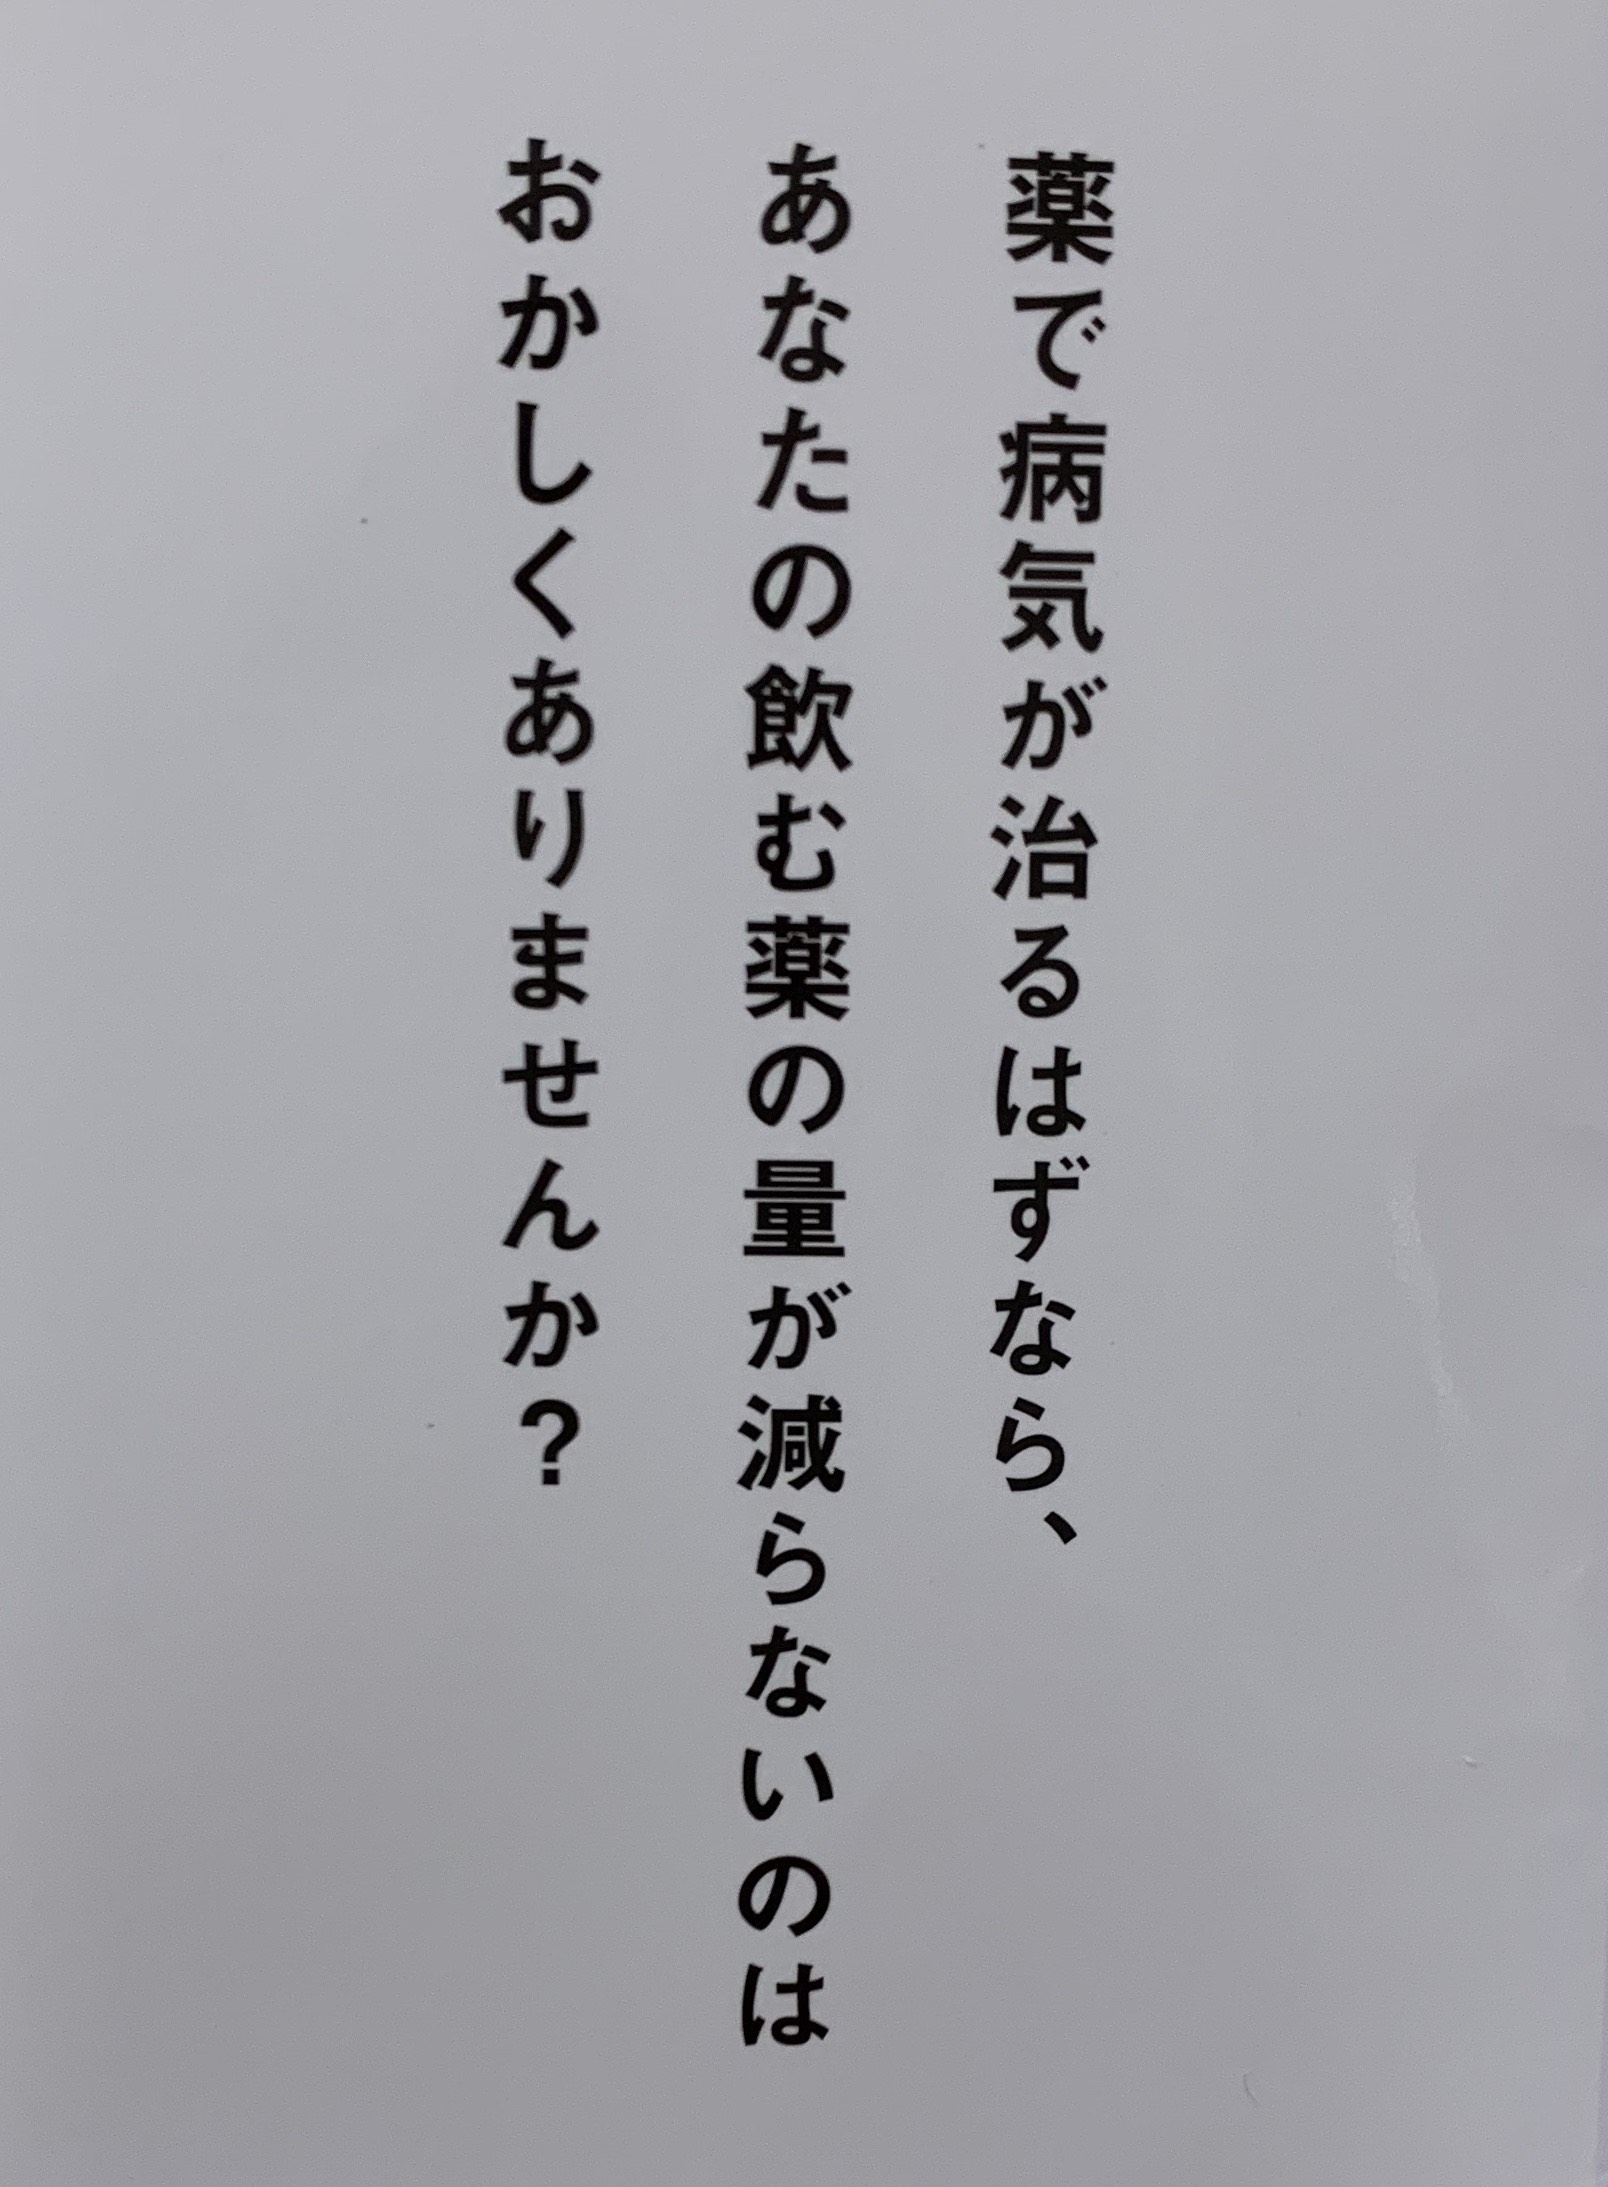 薬で病気が治るはずなら、
あなたの飲む薬の量が減らないのは
おかしくありませんか？